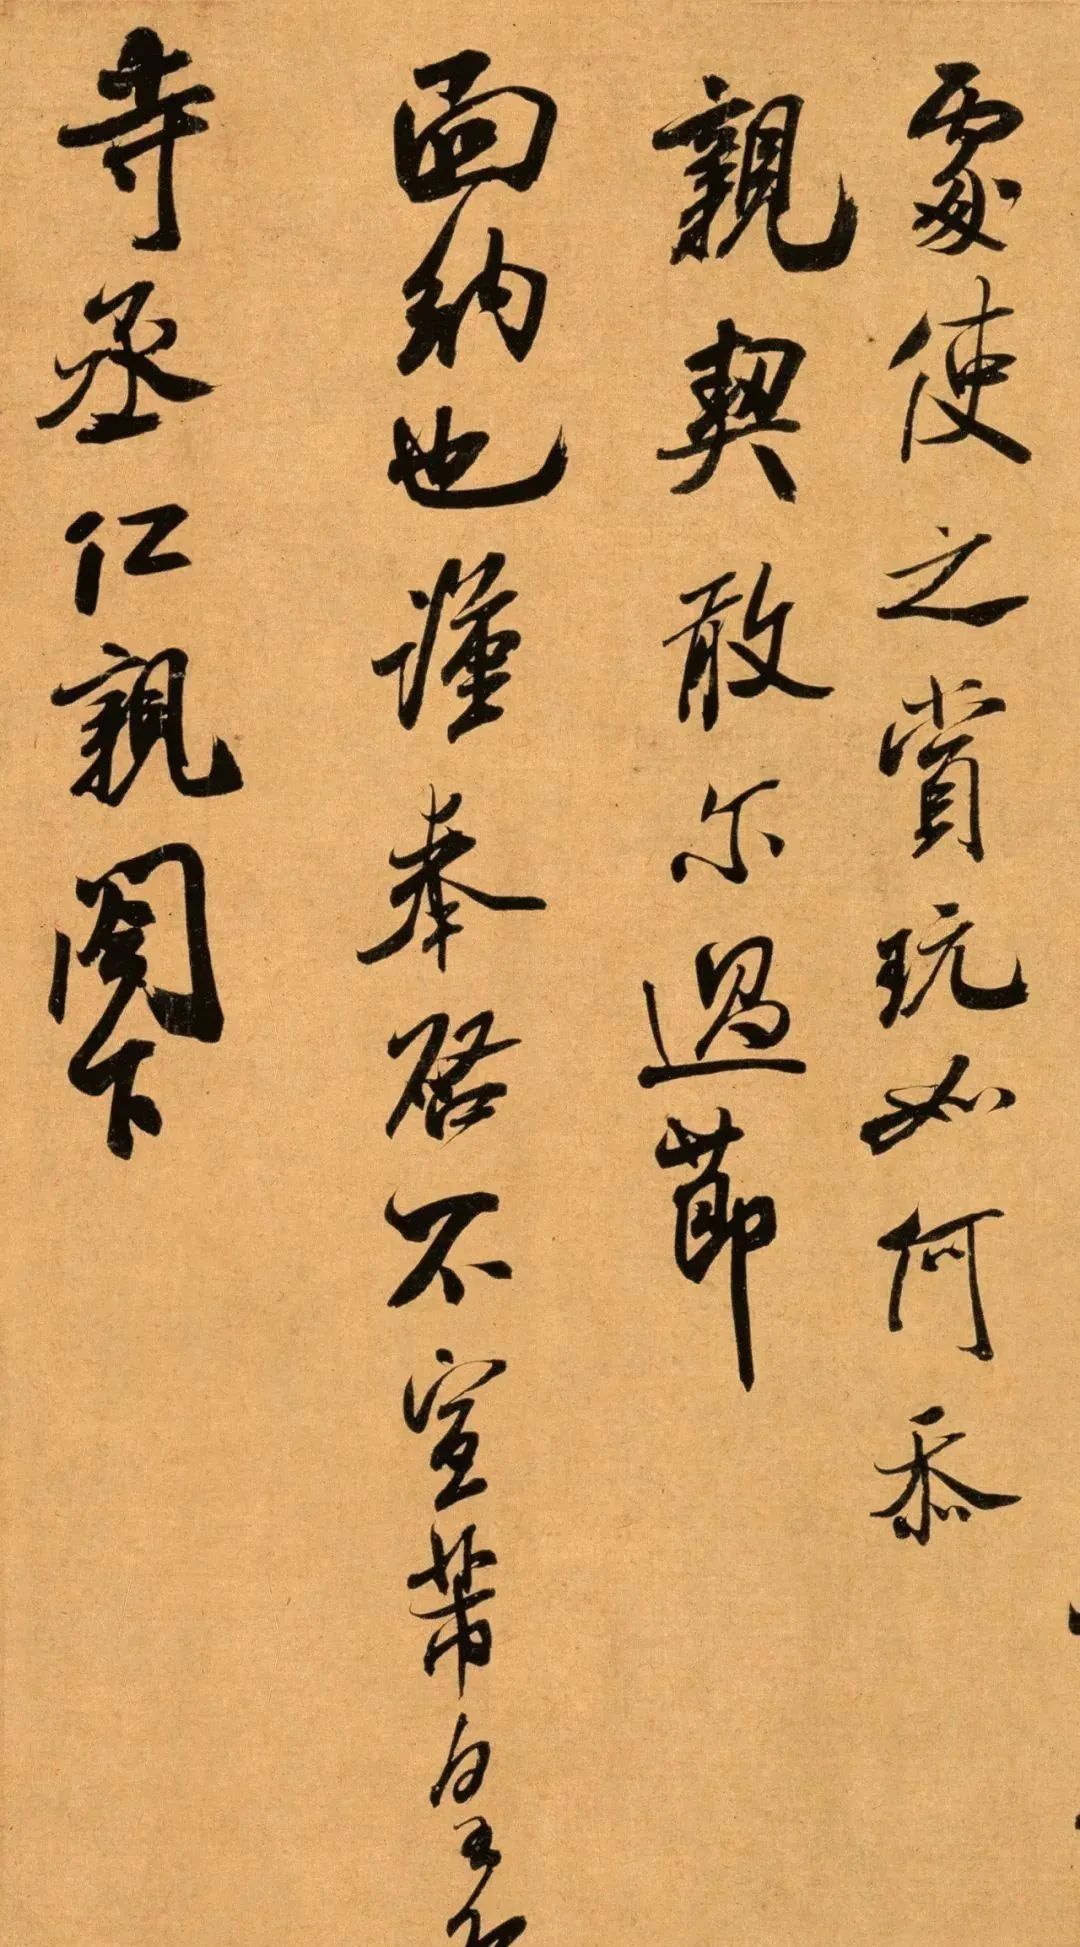 處使之賞玩如何忝
親契敢尔過節
面納也謹奉啓不宣芾皇
寺丞仁親閣下